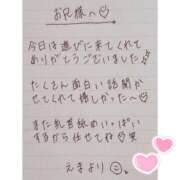 お兄様へ♡
今日は遊びに来てくれて
ありがとうございました♪
たくさん面白い話聞か
せてくれて嬉しかった〜♡
また乳首舐めいっぱい
するから任せてね♡笑
えまより☺